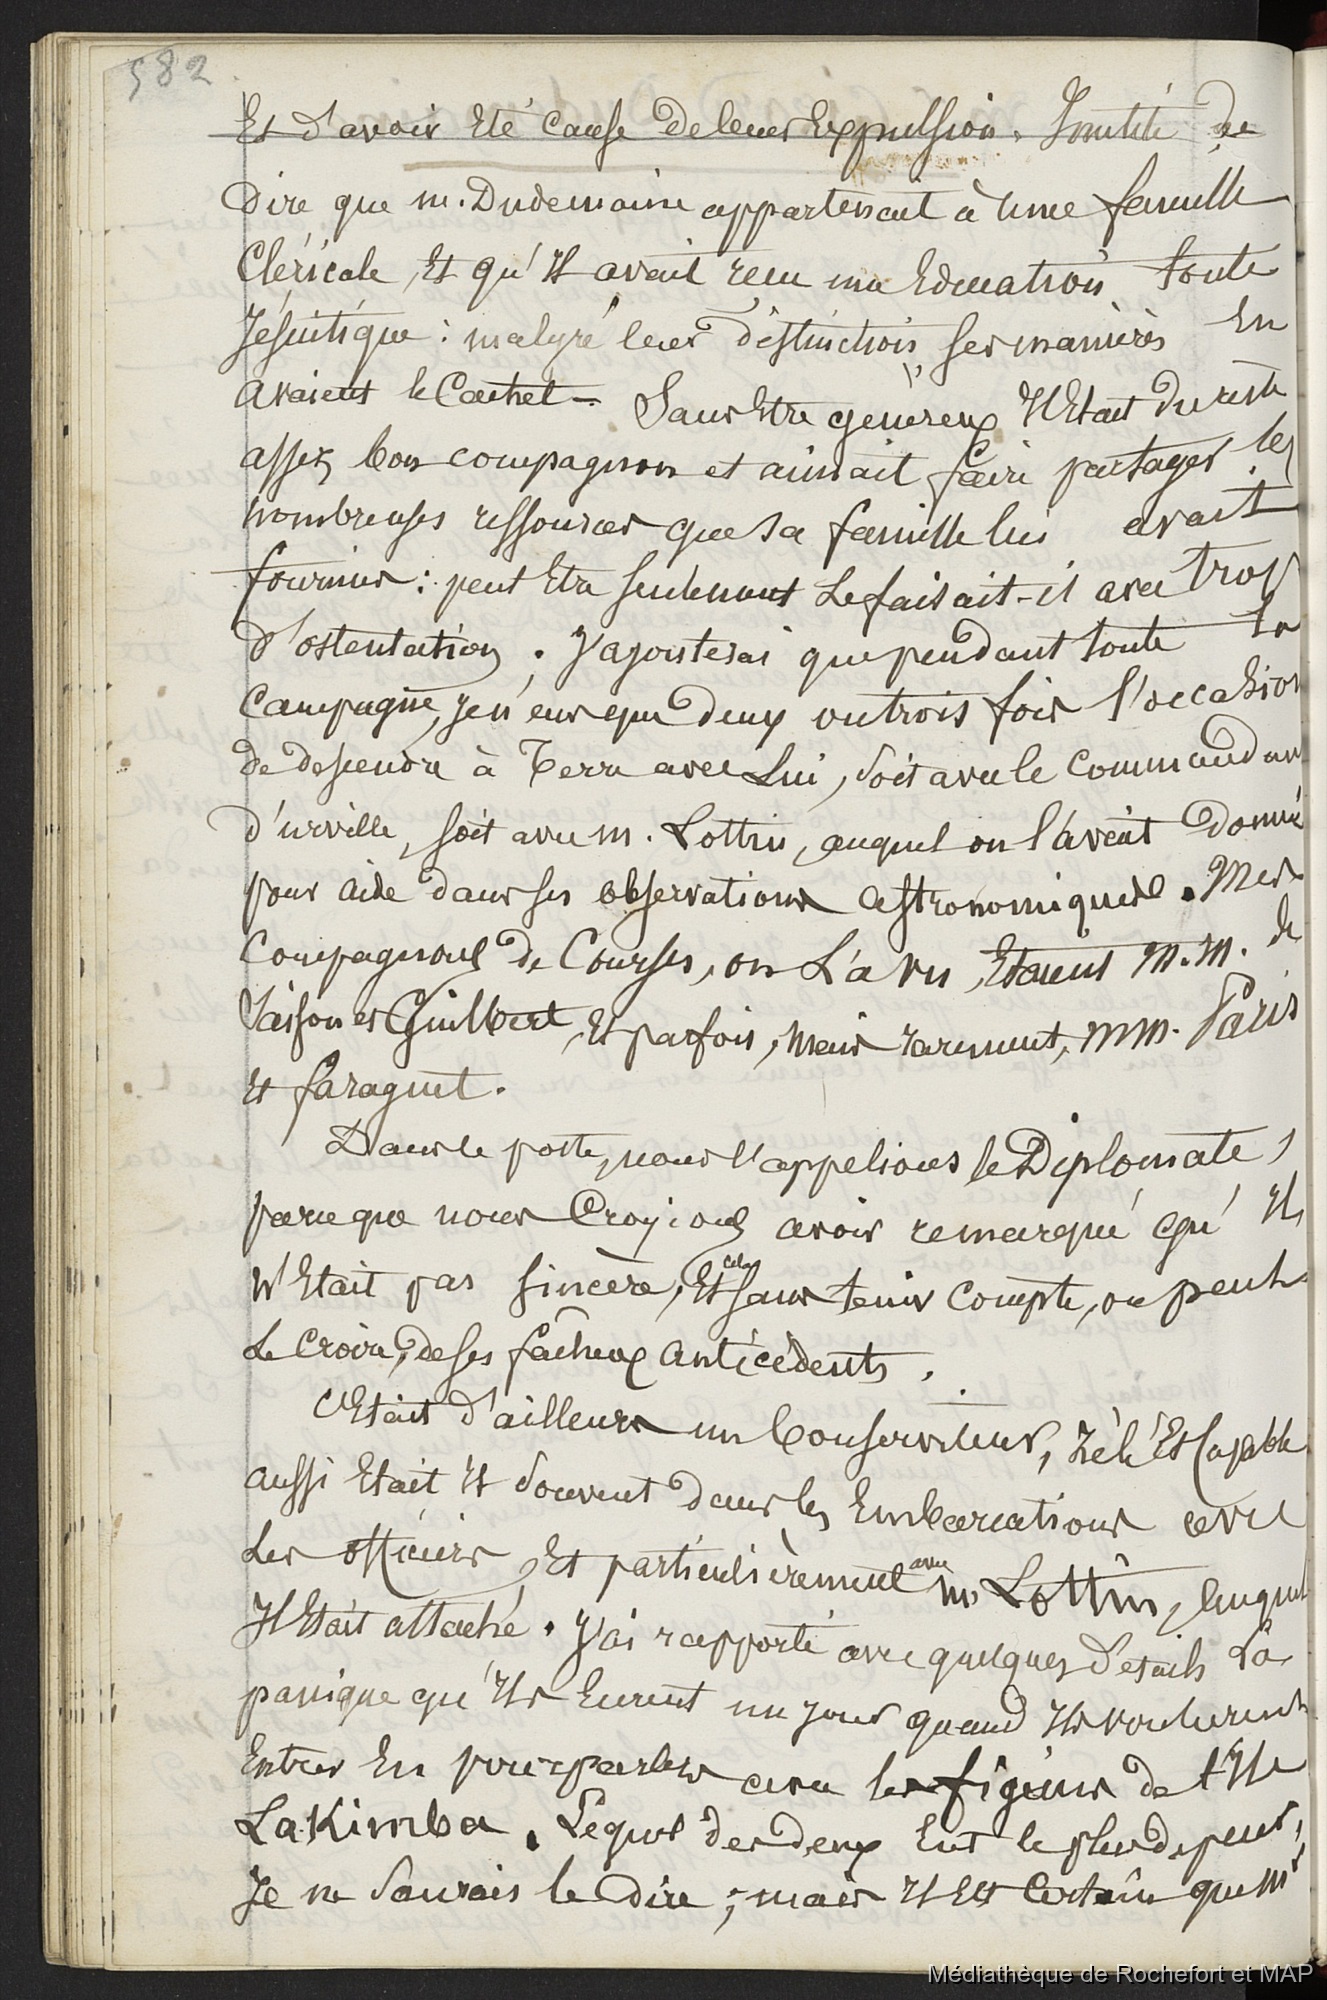 582
Et d'avoir Eté Cause de leur Expulsion. Inutile de
Dire que m. Dudemaine appartenait à une famille
Cléricale, Et qu'Il avait recu une Education toute
Jésuitique : malgré leur distinction ses manières En
avaient le Cachet – Sans Etre généreux Il Etait du reste
assez bon compagnon et aimait faire partager les
nombreuses ressources que sa famille lui avait
fournies : peut Etre seulement Le faisait-il avec trop
d'ostentation. J'ajouterai que pendant toute la
Campagne, Je n'eus que deux ou trois fois l'occasion
de descendre à Terre avec Lui, soit avec le Commandant
d'urville, soit avec m. Lottin, auquel on l'avait donné
pour aide dans ses observations astronomiques. Mes
Compagnons de Courses, on L'a vu, Etaient M.M. de
Saisson et Guilbert, Et parfois, mais rarement, MM. Paris
Et faraguet.
Dans le poste, nous l'appelions le Diplomate,
parce que nous Croyions avoir remarqué qu'Il
N'Etait pas sincère, Et cela sans tenir Compte, on peut
Le Croire, de ses fâcheux antécédents.
C'Etait d'ailleurs un bon serviteur, zélé Et Capable
aussi Etait Il souvent dans les Embarcations avec
Les officiers, Et particulièrement avec M. Lottin, auquel
Il Etait attaché. J'ai rapporté avec quelques détails La
panique qu'Ils Eurent un jour quand Ils voulurent
Entrer En pourparlers avec les figiens de l'Ile
LaKimba. Lequel des deux Eut le plus de peur,
Je ne saurais le dire ; mais Il Est Certain que Mr
Médiathèque de Rochefort et MAP